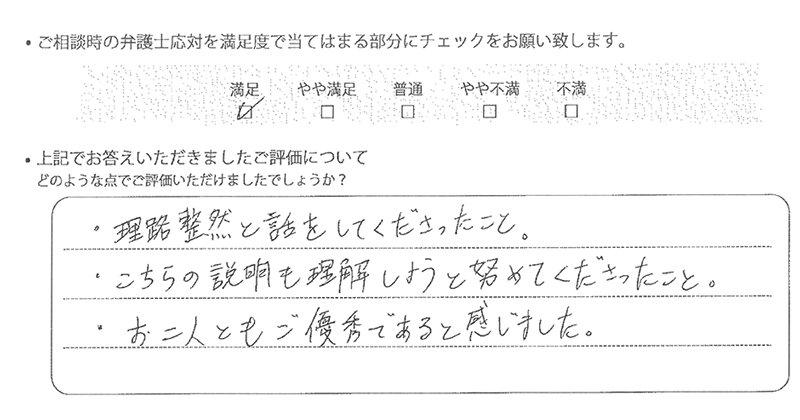 ・ご相談時の弁護士応対を満足度で当てはまる部分にチェックをお願い致します。
満足 やや満足 普通 やや不満 不満
☑ □ □ □ □
・上記でお答えいただきましたご評価について
どのような点でご評価いただけましたでしょうか？
・理路整然と話をしてくださったこと。
・こちらの説明も理解しようと努めてくださったこと。
・お二人ともご優秀であると感じました。